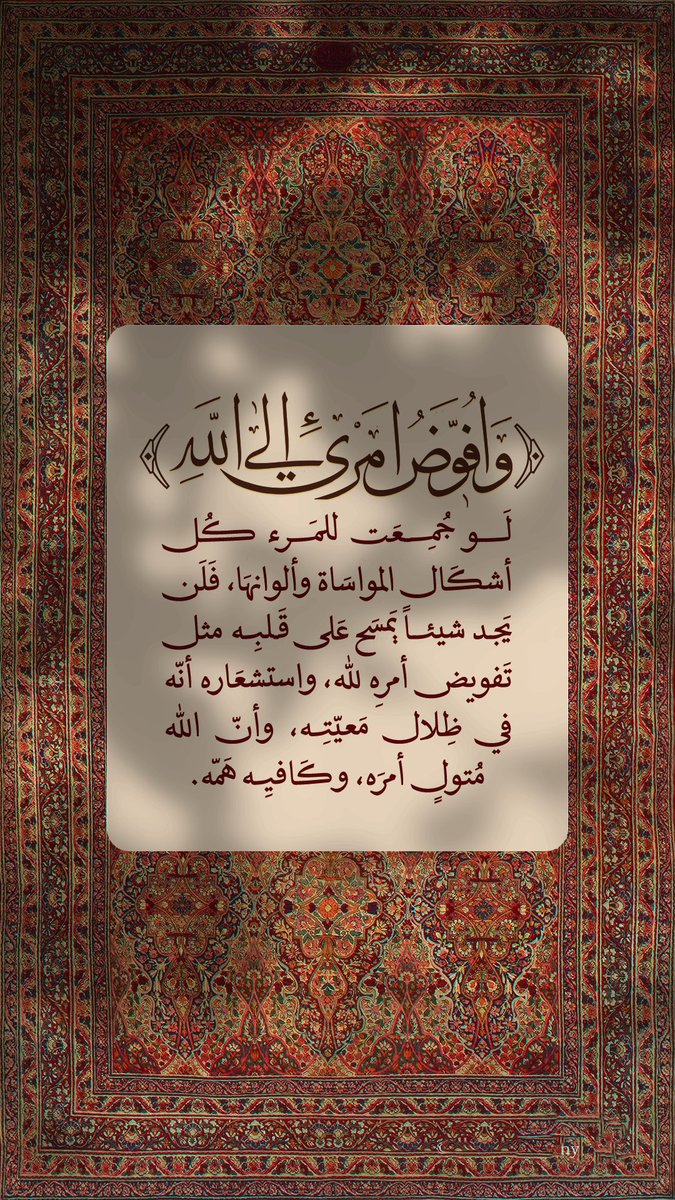 ﴿وَأُفَوِّضُ أَمْرِىٓ إِلَى اللَّهِ﴾
لَـو جُمِـعَـت للمَـرء كُـل
أشكَـال المواسَاة وألوانهَا، فَلَن
يَجد شيئـاً يَمسَح عَلى قَـلبِـه مثل
تَفويض أمرهِ لله، واستشعَاره أنّه
في ظِلال مَعيّتِـه، وأنّ الله
مُتولٍ أمرَه، وكَافيِـه هَمّه.
hy